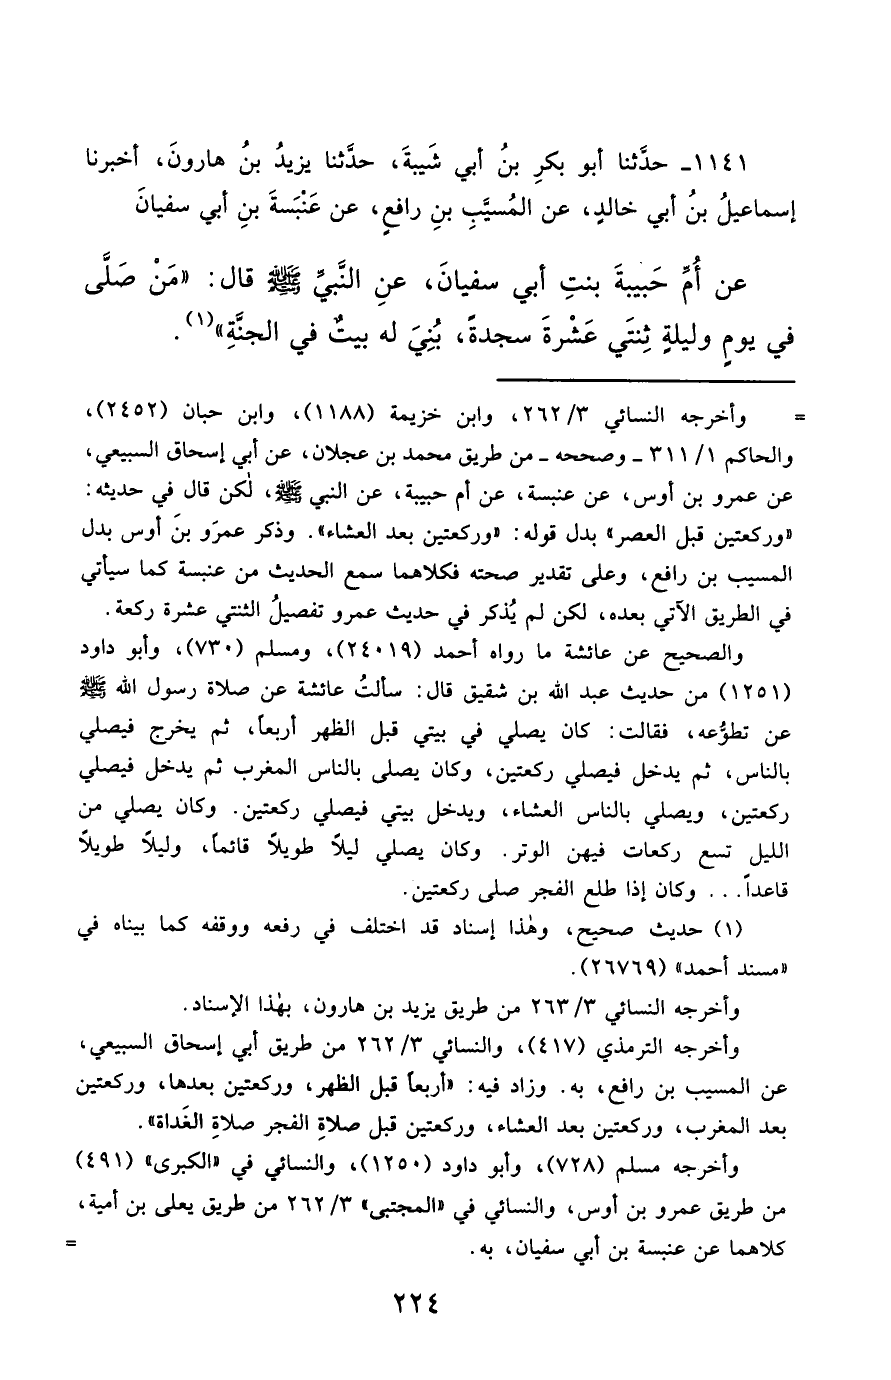 ١١٤١ـ حدَّثنا أبو بكرِ بنُ أبي شَيبةَ، حدَّثنا يزيدُ بنُ هارونَ، أخبرنا
إسماعيلُ بنُ أبي خالدٍ، عن المُسيَّبِ بنِ رافعٍ، عن عَنْبَسةَ بنِ أبي سفيانَ
عن أُمِّ حَبيبةَ بنتِ أبي سفيانَ، عنِ النَّبيِّ ﷺ قال: «مَنْ صَلَّى
في يومٍ وليلةٍ ثِنتَي عَشْرةَ سجدةً، بُنِيَ له بيتٌ في الجنَّةِ»(١).
= وأخرجه النسائي ٣/ ٢٦٢، وابن خزيمة (١١٨٨)، وابن حبان (٢٤٥٢)،
والحاكم ١/ ٣١١ ـ وصححه ـ من طريق محمد بن عجلان، عن أبي إسحاق السبيعي،
عن عمرو بن أوس، عن عنبسة، عن أم حبيبة، عن النبي ﷺ، لٰكن قال في حديثه:
«وركعتين قبل العصر» بدل قوله: «وركعتين بعد العشاء». وذكر عمرَو بنَ أوس بدل
المسيب بن رافع، وعلى تقدير صحته فكلاهما سمع الحديث من عنبسة كما سيأتي
في الطريق الآتي بعده، لكن لم يُذكر في حديث عمرو تفصيلُ الثنتي عشرة ركعة.
والصحيح عن عائشة ما رواه أحمد (٢٤٠١٩)، ومسلم (٧٣٠)، وأبو داود
(١٢٥١) من حديث عبد الله بن شقيق قال: سألتُ عائشة عن صلاة رسول الله ﷺ
عن تطوُّعه، فقالت: كان يصلي في بيتي قبل الظهر أربعاً، ثم يخرج فيصلي
بالناس، ثم يدخل فيصلي ركعتين، وكان يصلى بالناس المغرب ثم يدخل فيصلي
ركعتين، ويصلي بالناس العشاء، ويدخل بيتي فيصلي ركعتين. وكان يصلي من
الليل تسع ركعات فيهن الوتر. وكان يصلي ليلاً طويلاً قائماً، وليلاً طويلاً
قاعداً... وكان إذا طلع الفجر صلى ركعتين.
(١) حديث صحيح، وهٰذا إسناد قد اختلف في رفعه ووقفه كما بيناه في
«مسند أحمد» (٢٦٧٦٩).
وأخرجه النسائي ٣/ ٢٦٣ من طريق يزيد بن هارون، بهٰذا الإسناد.
وأخرجه الترمذي (٤١٧)، والنسائي ٣/ ٢٦٢ من طريق أبي إسحاق السبيعي،
عن المسيب بن رافع، به. وزاد فيه: «أربعاً قبل الظهر، وركعتين بعدها، وركعتين
بعد المغرب، وركعتين بعد العشاء، وركعتين قبل صلاةِ الفجر صلاةِ الغَداة».
وأخرجه مسلم (٧٢٨)، وأبو داود (١٢٥٠)، والنسائي في «الكبرى» (٤٩١)
من طريق عمرو بن أوس، والنسائي في «المجتبى» ٣/ ٢٦٢ من طريق يعلى بن أمية،
كلاهما عن عنبسة بن أبي سفيان، به. =
٢٢٤